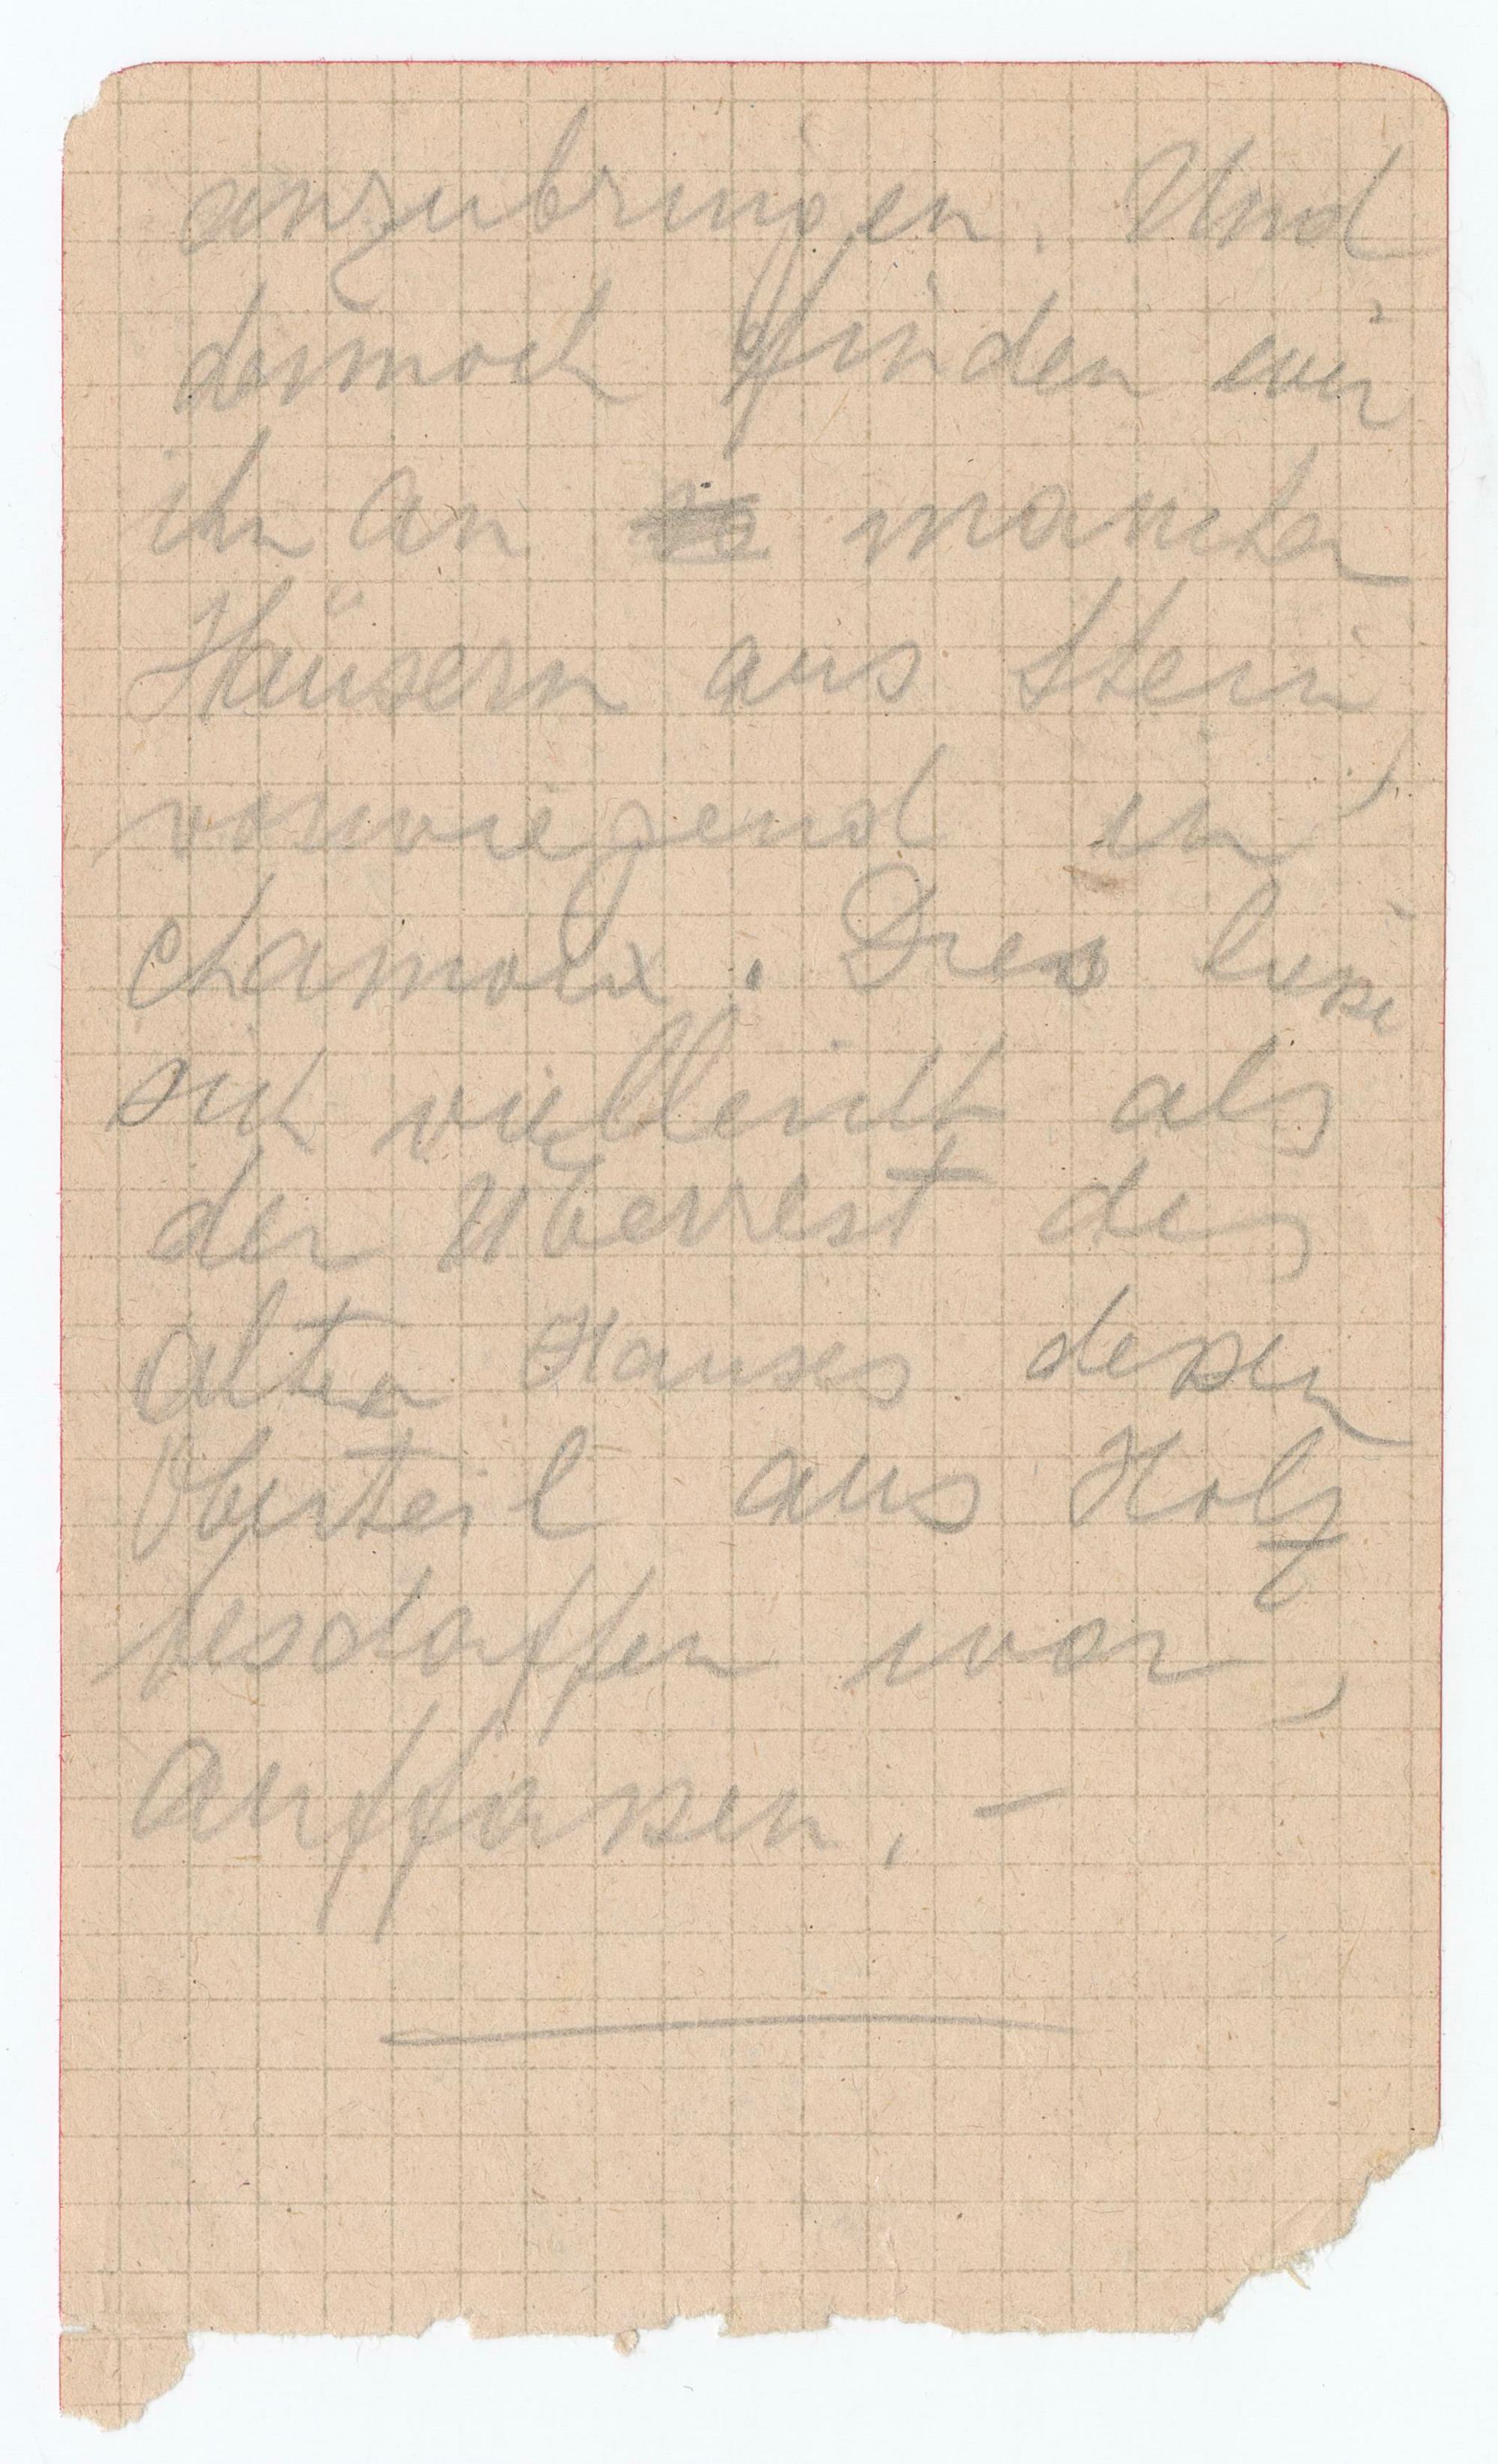 anzubringen. Und
dennoch finden wir
ihn an manchen
Häusern aus Stein
vorwiegend in
Chamoix. Dies liese
sich vielleicht als
der Überrest des
alten Hauses dessen
Oberteil aus Holz
geschaffen war,
auffassen. –